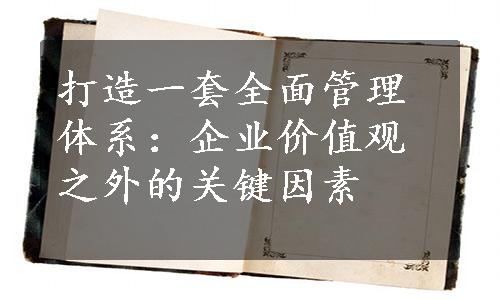 打造一套全面管理
体系：企业价值观
之外的关键因素